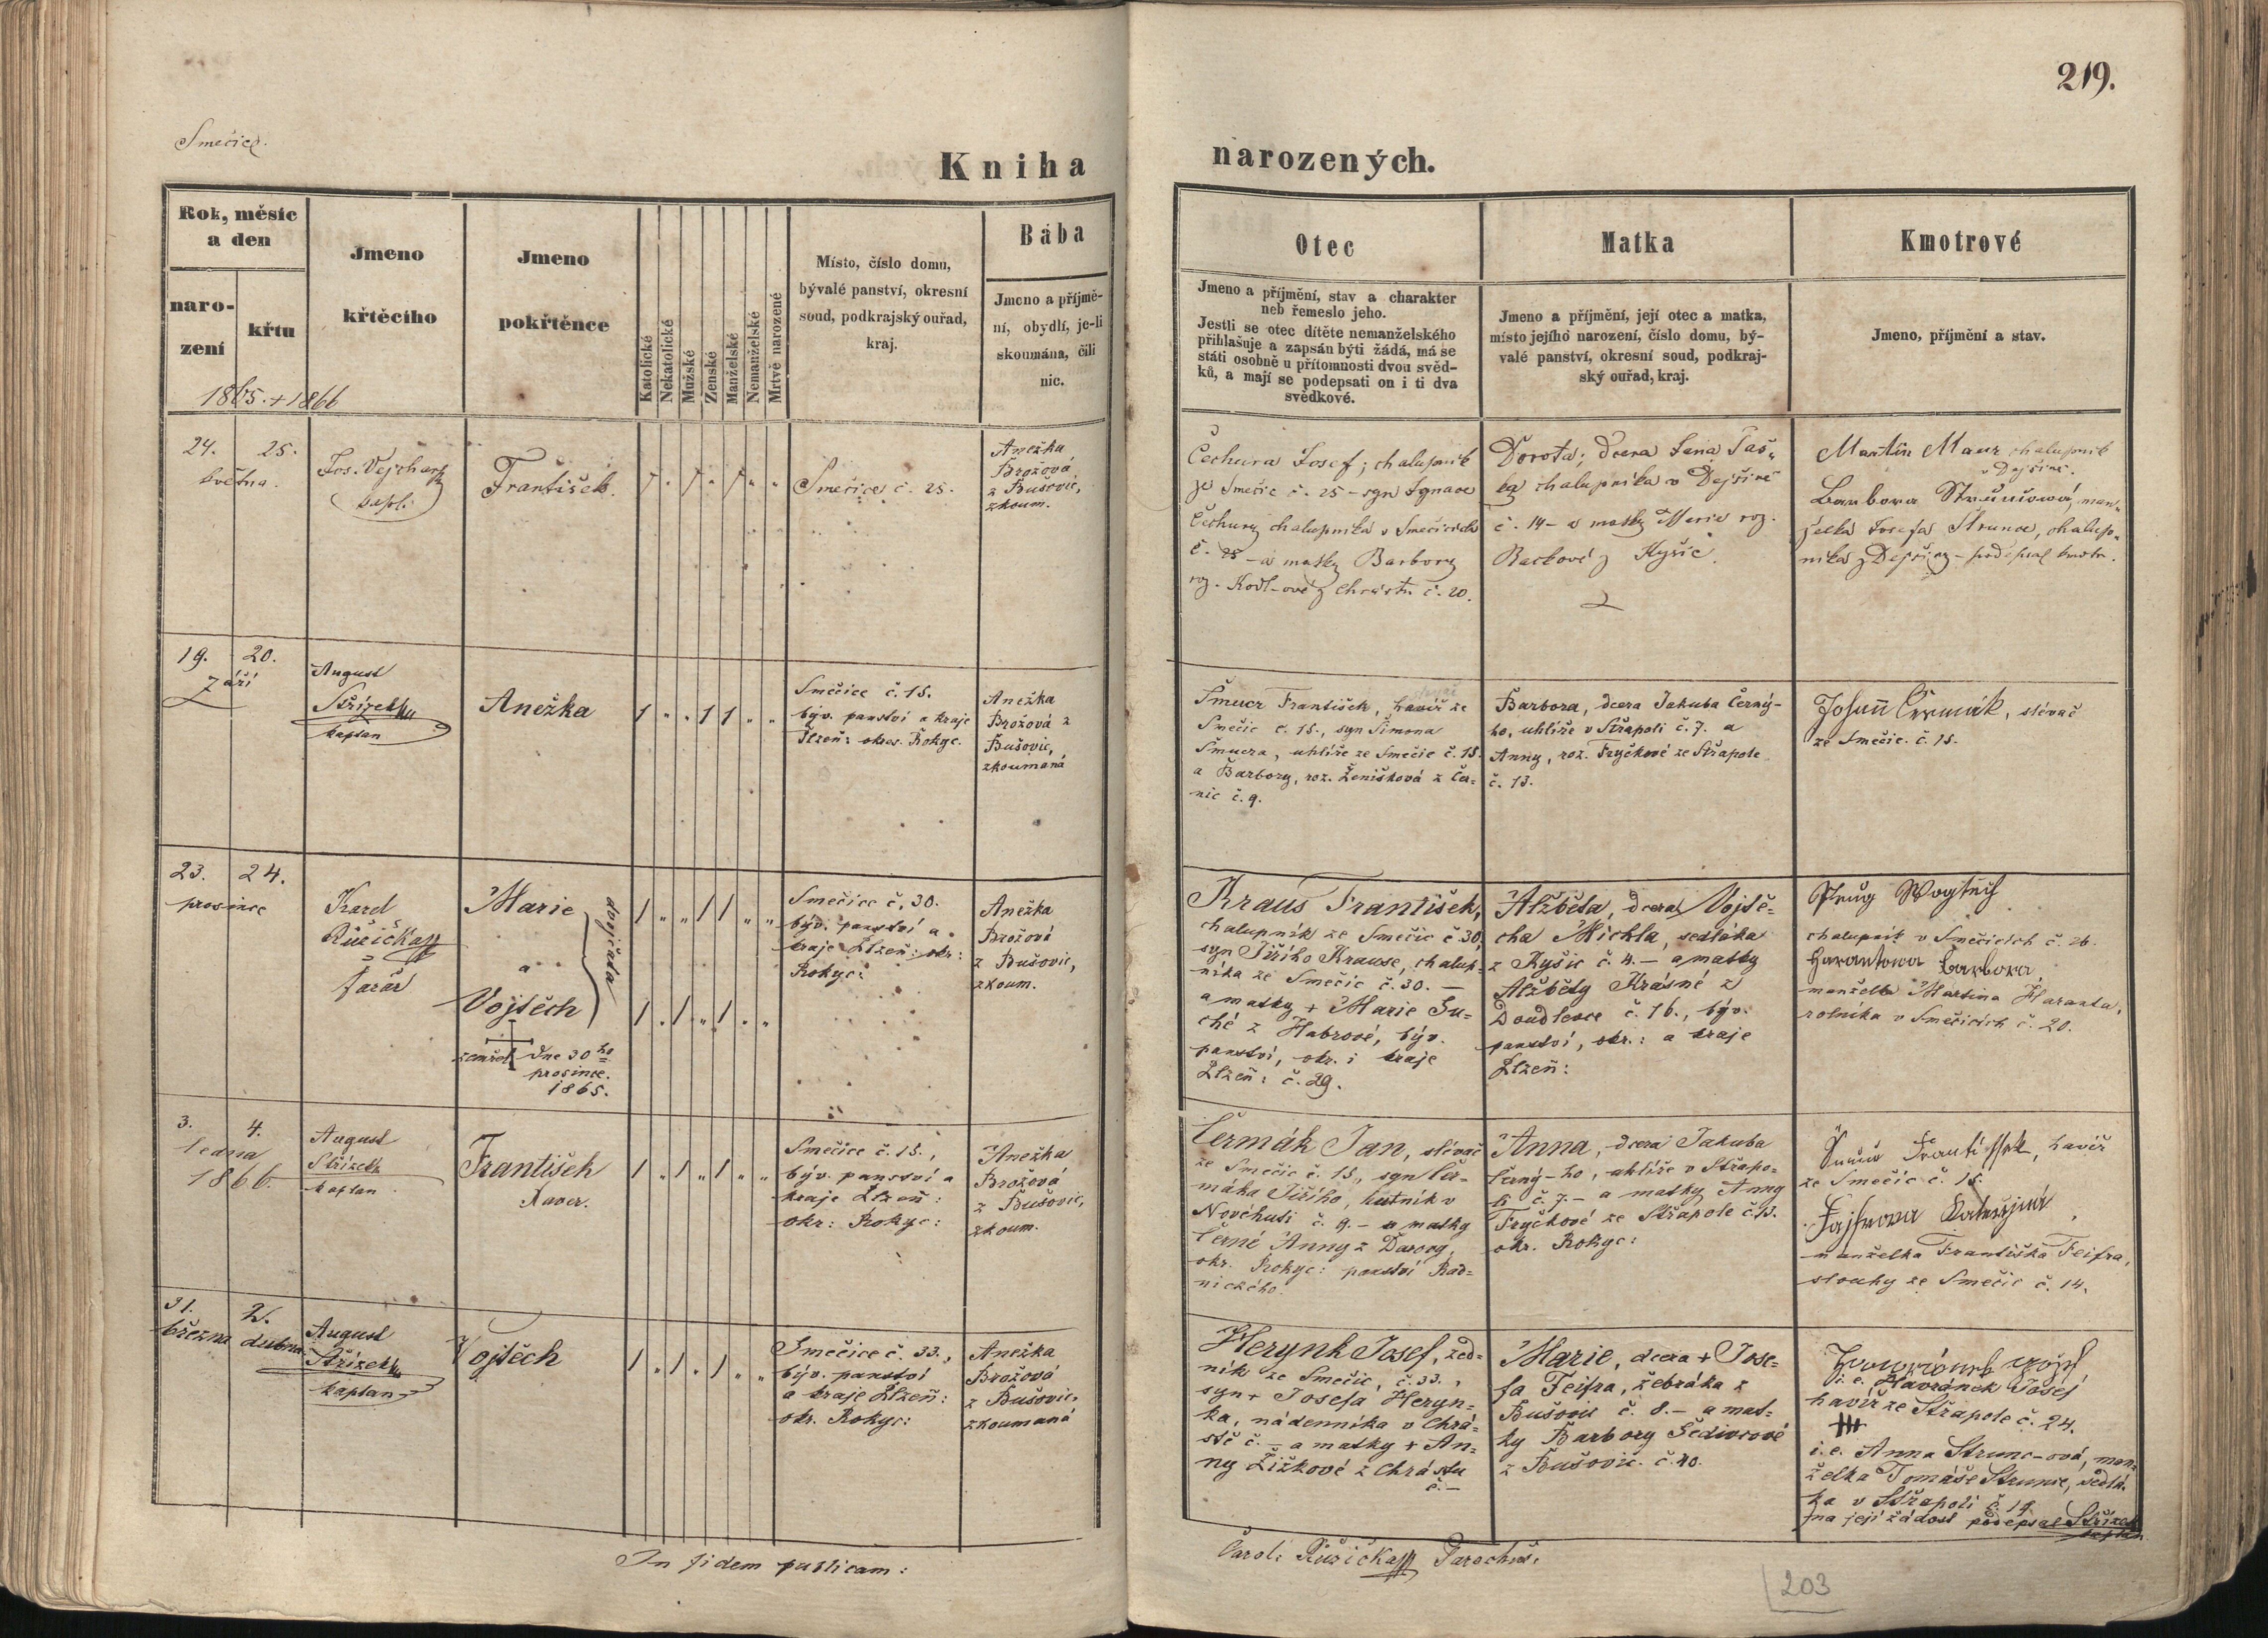 219.
Smečice.
Kniha narozených.
Rok, měsíc a den
narození
křtu
1865. + 1866
Jmeno křtěcího
Jmeno pokřtěnce
Katolické
Nekatolické
Mužské
Ženské
Manželské
Nemanželské
Mrtvě narozené
Místo, číslo domu,
bývalé panství, okresní
soud, podkrajský ouřad,
kraj.
Bába
Jmeno a příjmě-
ní, obydlí, je-li
skoumána, čili
nic.
Otec
Jmeno a příjmění, stav a charakter
neb řemeslo jeho.
Jestli se otec dítěte nemanželského
přihlašuje a zapsán býti žádá, má se
státi osobně u přítomnosti dvou svěd-
ků, a mají se podepsati on i ti dva
svědkové.
Matka
Jmeno a příjmění, její otec a matka,
místo jejího narození, číslo domu, bý-
valé panství, okresní soud, podkraj-
ský ouřad, kraj.
Kmotrové
Jmeno, příjmění a stav.
24. 25.
května.
Jos. Vejchar
kapl.
František.
Smečice č. 25.
Anežka
Brožová
z Bušovic,
zkoum.
Čechura Josef; chalupník
ze Smečic č. 25 - syn Ignace
Čechury chalupníka v Smečicích
č. 25 - a matky Barbory
roz. Kodl-ové z Chrástu č. 20.
Dorota; dcera Jana Paš-
ka chalupníka v Dejšině
č. 14 - a matky Marie roz.
Backové z Kyšic.
Martin Maur chalupník
z Dejšiné.
Barbora Strunsová, man-
želka Josefa Strunce, chalup-
níka z Dejšiny - podepsal kmotr.
19. 20.
Září
August
Střízek
kaplan
Anežka
1 " " 1 1 " "
Smečice č. 15.
býv. panství a kraje
Plzeň: okres. Rokyc.
Anežka
Brožová z
Bušovic,
zkoumaná
Šmucr František, havíř ze
Smečic č. 15., syn Šimona
Šmucra, uhlíře ze Smečic č. 15.
a Barbory, roz. Ženíšková z Čer-
nic č. 9.
Barbora, dcera Jakuba Černý-
ho, uhlíře v Střapoli č. 7. a
Anny, roz. Fryčkové ze Střapole
č. 13.
Johann Čermák, slévač
ze Smečic. č. 15.
23. 24.
prosince
Karel
Růžička
farář
Marie
a
Vojtěch
dvojčata
zemřel dne 30ho
prosince.
1865.
1 " " 1 1 " "
1 " 1 " 1 " "
Smečice č. 30.
býv. panství a
kraje Plzeň: okr:
Rokyc:
Anežka
Brožová
z Bušovic,
zkoum.
Kraus František,
chalupník ze Smečic č 30,
syn Jiřího Krause, chalup-
níka ze Smečic č. 30. —
a matky + Marie Su-
ché z Habrové, býv.
panství, okr. i kraje
Plzeň: č. 29.
Alžběta, dcera Vojtě-
cha Míchla, sedláka
z Kyšic č. 4. — a matky
Alžběty Krásné z
Doudlevce č. 16., býv.
panství, okr.: a kraje
Plzeň:
Wogtěch
chalupník v Smečicích č. 26.
Harantowa Barbora,
manželka Martina Haranta,
rolníka v Smečicích č. 20.
3. 4.
ledna
1866.
August
Střízek
kaplan
František
Xaver.
1 " 1 " 1 " "
Smečice č. 15.,
býv. panství a
kraje Plzeň:
okr: Rokyc:
Anežka
Brožová
z Bušovic,
zkoum.
Čermák Jan, slévač
ze Smečic č. 15., syn Čer-
máka Jiřího, hutník v
Novéhuti č. 9. — a matky
Černé Anny z Darovy,
okr. Rokyc: panství Rad-
nického.
Anna, dcera Jakuba
Černý-ho, uhlíře v Střapo-
li č. 7. — a matky Anny
Fryčkové ze Střapole č. 13.
okr. Rokyc:
Frantissek, havíř
ze Smečic č. 15.
Fajfrova Kateřyna,
manželka Františka Feifra,
slouhy ze Smečic č. 14.
31. 2.
března dubna
August
Střízek
kaplan
Vojtěch
1 " 1 " 1 " "
Smečice č. 33.,
býv. panství
a kraje Plzeň:
okr. Rokyc:
Anežka
Brožová
z Bušovic,
zkoumaná
Herynk Josef, zed-
ník ze Smečic, č. 33.,
syn + Josefa Heryn-
ka, nádenníka v Chrá-
stě č. — a matky + An-
ny Žižkové z Chrástu
č. —
Marie, dcera + Jose-
fa Feifra, žebráka z
Bušovic č. 8. — a mat-
ky Barbory Šedivcové
z Bušovic. č. 40.
i. e. Havránek Josef
havíř ze Střapole č. 24.
+++
i. e. Anna Strunc-ová, man-
želka Tomáše Strunce, sedlá-
ka v Střapoli č. 19.
na její žádost podepsal Střízek
kaplan
In fidem publicam:
Carol: Růžička Parochus.
203